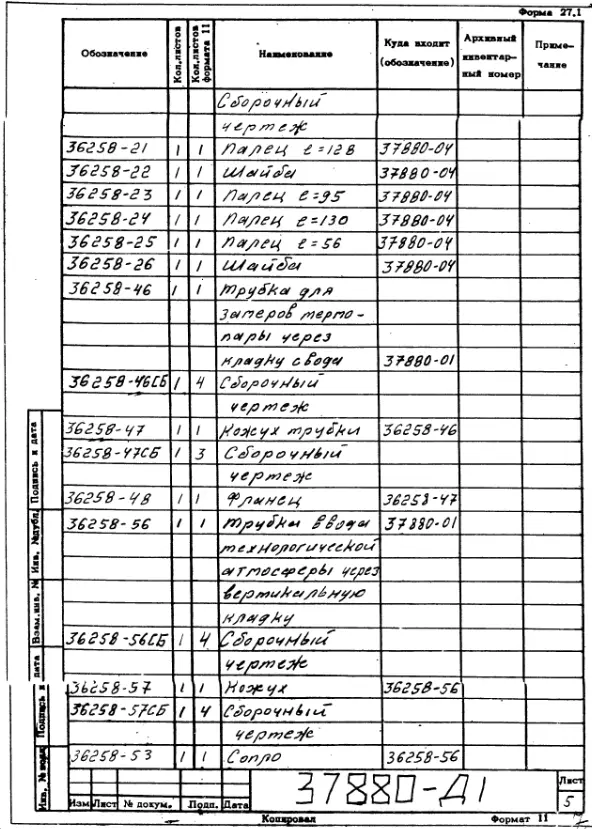 Форма 27.1
Обозначение Кол.листов Кол.листов формата 11 Наименование Куда входит (обозначение) Архивный инвентарный номер Примечание
Сборочный
чертеж
36258-21 1 1 Палец e=128 37880-04
36258-22 1 1 Шайба 37880-04
36258-23 1 1 Палец e=95 37880-04
36258-24 1 1 Палец e=130 37880-04
36258-25 1 1 Палец e=56 37880-04
36258-26 1 1 Шайба 37880-04
36258-46 1 1 Трубка для
замеров термо-
пары через
кладку свода 37880-01
36258-46СБ 1 4 Сборочный
чертеж
36258-47 1 1 Кожух трубки 36258-46
36258-47СБ 1 3 Сборочный
чертеж
36258-48 1 1 Фланец 36258-47
36258-56 1 1 Трубка ввода 37880-01
технологической
атмосферы через
вертикальную
кладку
36258-56СБ 1 4 Сборочный
чертеж
36258-57 1 1 Кожух 36258-56
36258-57СБ 1 4 Сборочный
чертеж
36258-53 1 1 Сопло 36258-56
Подпись и дата
Инв. №дубл.
Взам.инв. №
Подпись и дата
Инв. №подл.
Изм Лист № докум. Подп. Дата
37880-Д1
Лист
5
Копировал Формат 11